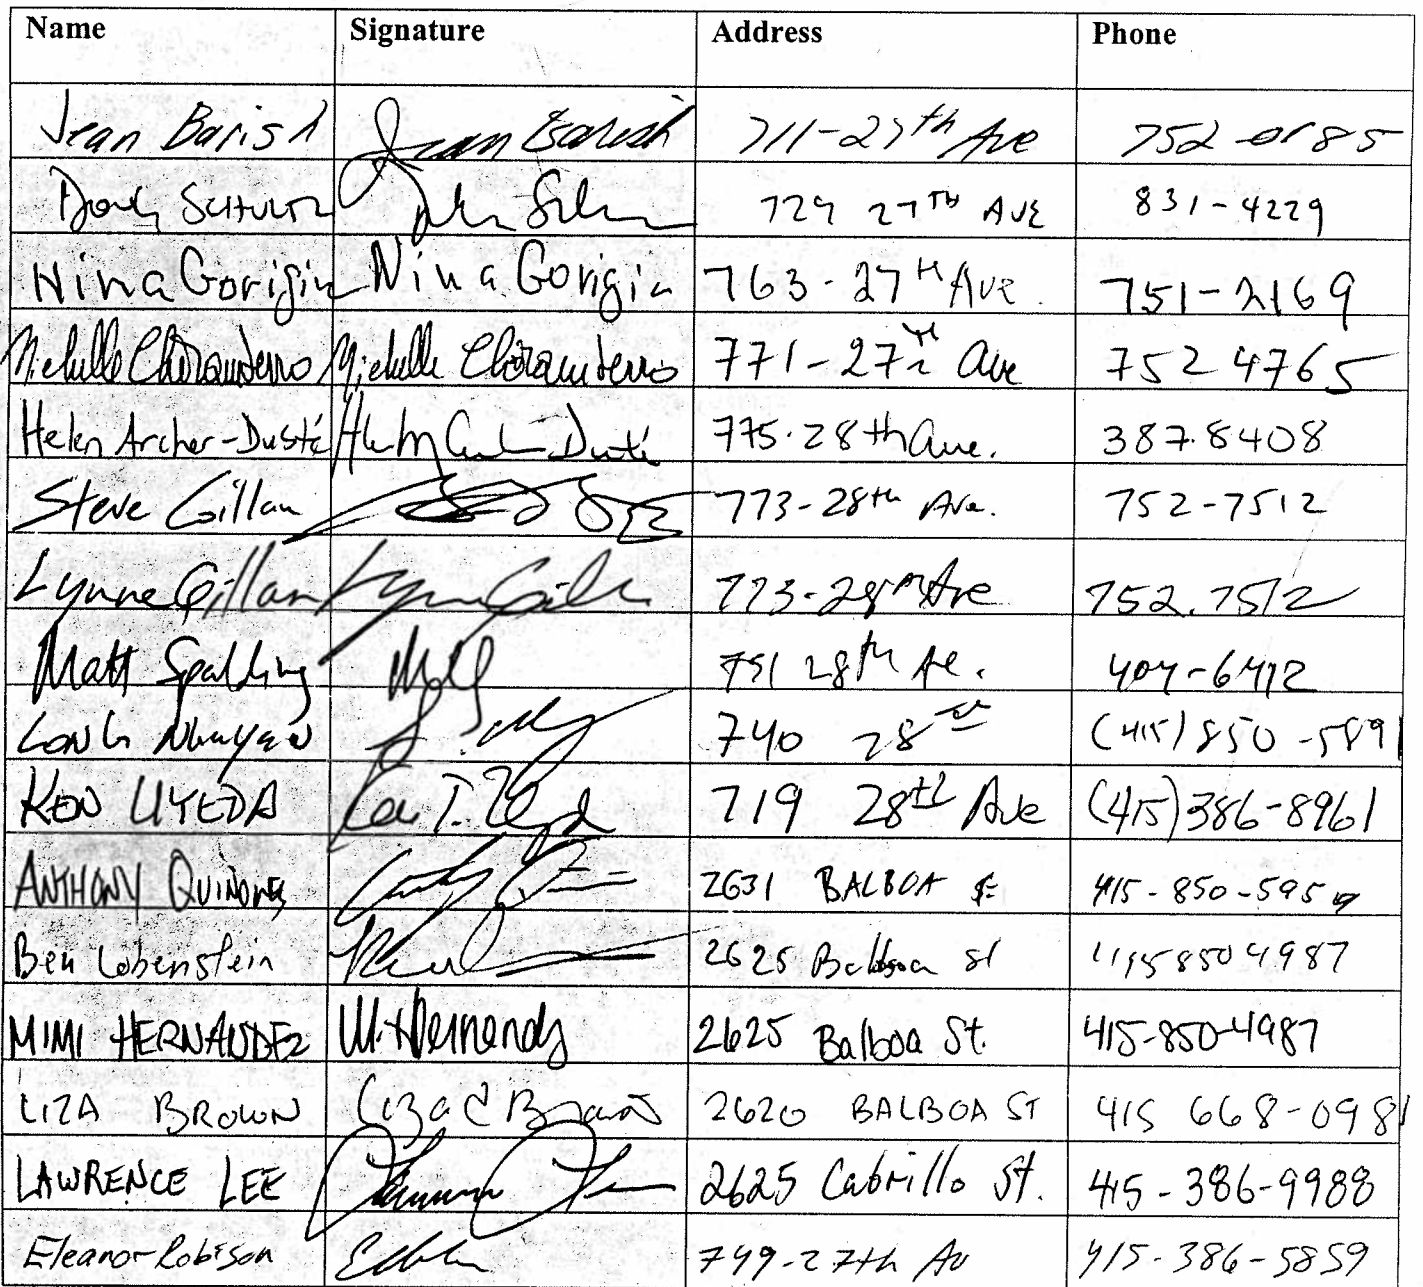 Name Signature Address Phone
Jean Barish Jean Barish 711-27th Ave 752-0185
Doug Schultz 729 27TH AVE 831-4229
Nina Gorigin Nina Gorigin 763-27th Ave. 751-2169
Michelle Michelle 771-27th Ave 752 4765
Helen Archer-Dusté 775-28th Ave. 387.8408
Steve Gillan 773-28th Ave. 752-7512
Lynne Gillan Lynne 773-28th Ave 752.7512
Matt Spalding 751 28th Ave.
740 28th (415) 850-5891
KEN UYEDA Ken T. Uyeda 719 28th Ave (415) 386-8961
ANTHONY QUINONES 2631 BALBOA St
Ben Lobenstein 2625 Balboa st 415 850 4987
MIMI HERNANDEZ 2625 Balboa St. 415-850-4987
LIZA BROWN Liza C Brown 2620 BALBOA ST 415 668-0981
LAWRENCE LEE 2625 Cabrillo St. 415-386-9988
Eleanor Robison 749-27th Av 415-386-5859